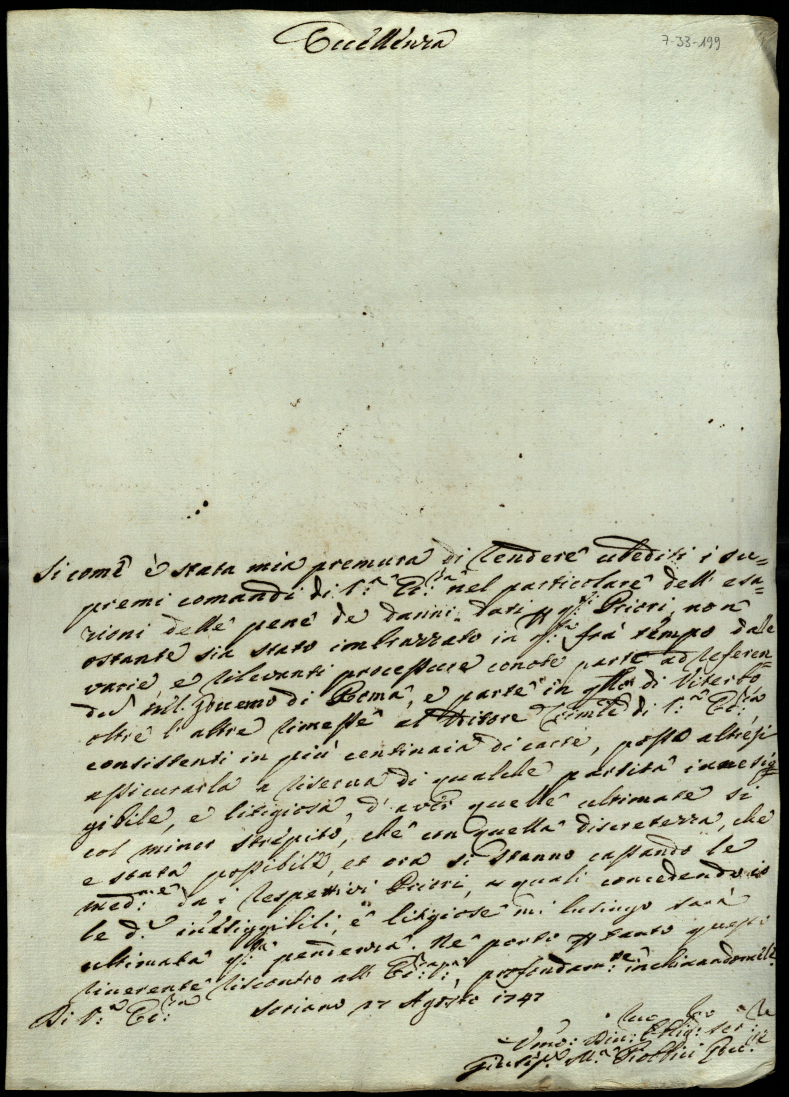 Eccellenza
7-33-199
Si come è stata mia premura di rendere ubediti i su=
premi comandi di V.ra Ecc.za nel particolare dell' esa=
zioni delle pene de danni dati p q.ti Priori, non
ostante sia stato imbrazzato in q.to frà tempo dalle
varie, e rilevanti processure
di Roma, e parte in di Viterbo
oltre l'altre rimesse al Uditore di V.ra Ecc.za
consistenti in più centinaia di carte, posso altresi
assicurarla a riserva di qualche partita inesig=
gibile, e litigiosa d'aver quelle ultimate si
col minor strepito, che con quella discretezza, che
e stata possibile, et ora si stanno cassando le
med.me da i respettivi Priori, a quali concedendo io
le d.e inesiggibili, e litigiose mi lusingo sarà
ultimata q.ta pendenza. Ne porto p tanto questo
riverente riscontro all' Ecc.za V.ra, e profondam.te inchinandomile
Di V.ra Ecc.za Soriano 27 Agosto 1747
Umo: Div: Oblig: Ser:
Giusep.e M.a